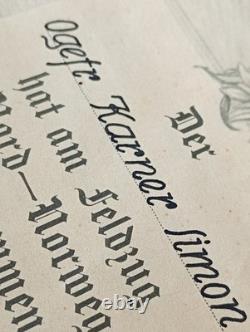 Der
Ogefr. Karner Simon
hat am Feldzug
Nord-Norweg
men